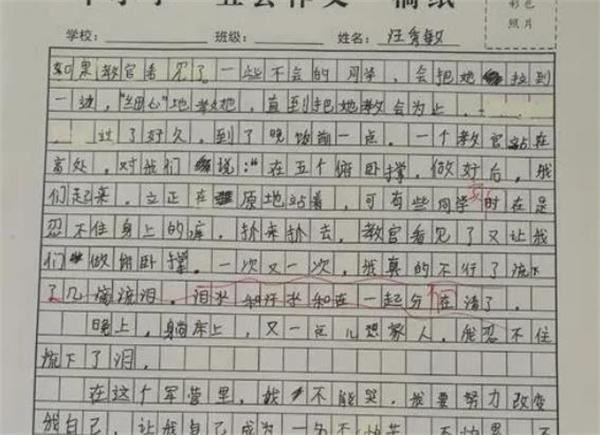 五云作文 稿纸
彩色
照片
学校: 班级: 姓名: 汪秀敏
如果教官看见了一些不会的同学,会把她拉到
一边,“细心”地教她,直到把她教会为止。
过了好久,到了晚饭前一点。一个教官站在
高处,对我们说:“在五个俯卧撑,做好后,我
们起来。立正在原地站着,可有些同学实时在是
忍不住身上的痒,扑来扑去。教官看见了又让我
们做俯卧撑。一次又一次,我真的不行了流下
了几滴流泪。泪水和汗水和在一起分不在清了。
晚上,躺床上,又一边儿想家人,我忍不住
流下了泪。
在这个军营里,我不能哭,我要努力改变
我自己,让我自己成为一名不怕苦,不怕累,不